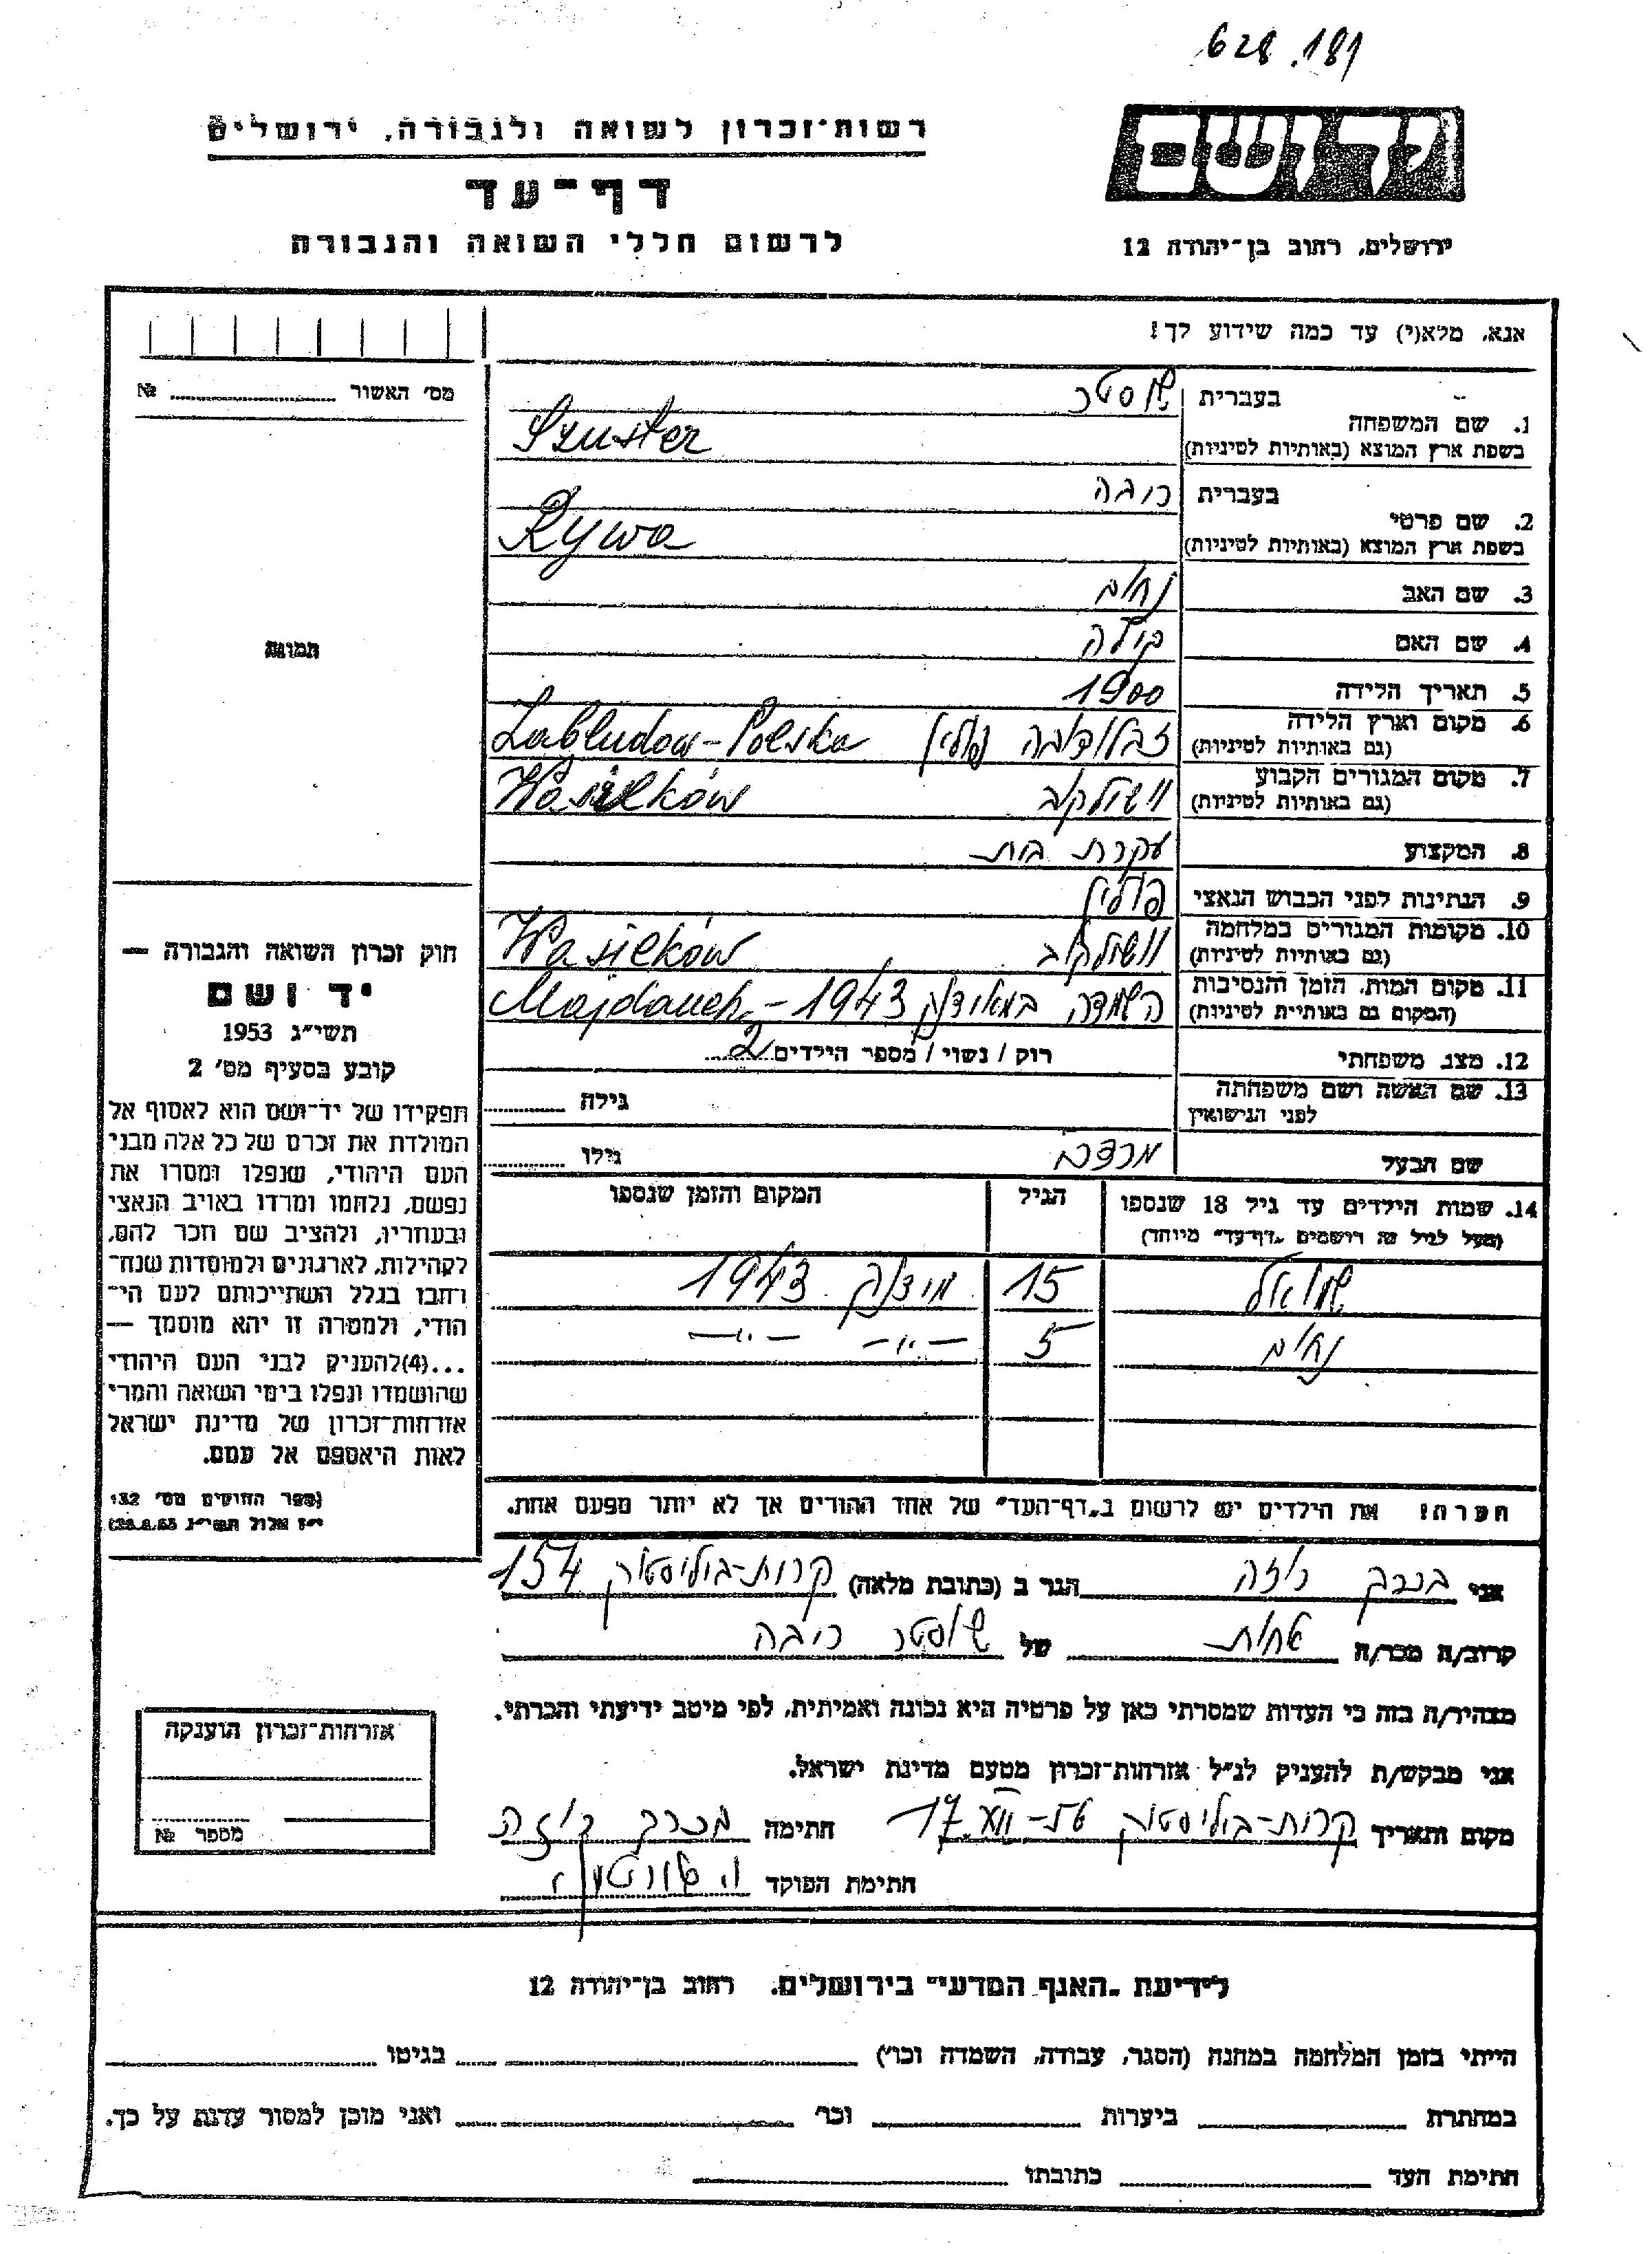 628.181
רשות־זכרון לשואה ולגבורה, ירושלים
דף־עד
לרשום חללי השואה והגבורה
יד ושם
ירושלים, רחוב בן־יהודה 12
אנא, מלא(י) עד כמה שידוע לך!
מס' האשור № 
1. שם המשפחה
בעברית שוסטר
בשפת ארץ המוצא (באותיות לטיניות) Szuster
2. שם פרטי
בעברית ריבה
בשפת ארץ המוצא (באותיות לטיניות) Rywa
3. שם האב נחום
4. שם האם בילה
5. תאריך הלידה 1900
6. מקום וארץ הלידה זבלודובה פולין Zabludow-Polska
(גם באותיות לטיניות)
7. מקום המגורים הקבוע וושילקוב Wasilków
(גם באותיות לטיניות)
8. המקצוע עקרת בית
9. הנתינות לפני הכבוש הנאצי פולין
10. מקומות המגורים במלחמה וושילקוב Wasilków
(גם באותיות לטיניות)
11. מקום המות, הזמן והנסיבות השמדה 1943 - Majdanek
(המקום גם באותיות לטיניות)
12. מצב משפחתי רוק / נשוי / מספר הילדים 2
13. שם האשה ושם משפחתה גילה
לפני הנישואין
שם הבעל מרדכי גילו
14. שמות הילדים עד גיל 18 שנספו הגיל המקום והזמן שנספו
(מעל לגיל זה רושמים "דף־עד" מיוחד)
שמואל 15 1943
נחום 5 -"- -"-
תמונה
חוק זכרון השואה והגבורה —
יד ושם
תשי״ג 1953
קובע בסעיף מס' 2
תפקידו של יד־ושם הוא לאסוף אל
המולדת את זכרם של כל אלה מבני
העם היהודי, שנפלו ומסרו את
נפשם, נלחמו ומרדו באויב הנאצי
ובעוזריו, ולהציב שם וזכר להם,
לקהילות, לארגונים ולמוסדות שנח־
רבו בגלל השתייכותם לעם הי־
הודי, ולמטרה זו יהא מוסמך —
...(4)להעניק לבני העם היהודי
שהושמדו ונפלו בימי השואה והמרי
אזרחות־זכרון של מדינת ישראל
לאות היאספם אל עמם.
(ספר החוקים מס' 132
י״ז אלול תשי״ג 28.8.53)
הערה! את הילדים יש לרשום ב„דף־העד" של אחד ההורים אך לא יותר מפעם אחת.
אני רוזה הגר ב (כתובת מלאה) קרית-ביליסטוק 154
קרוב/ה מכר/ה אחות של שוסטר ריבה
מצהיר/ה בזה כי העדות שמסרתי כאן על פרטיה היא נכונה ואמיתית, לפי מיטב ידיעתי והכרתי.
אני מבקש/ת להעניק לנ״ל אזרחות־זכרון מטעם מדינת ישראל.
מקום ותאריך קרית-ביליסטוק 17.XII-56 חתימה רוזה
חתימת הפוקד
אזרחות־זכרון הוענקה
מספר №
לידיעת „האגף המדעי" בירושלים, רחוב בן־יהודה 12
הייתי בזמן המלחמה במחנה (הסגר, עבודה, השמדה וכו') בגיטו
במחתרת ביערות וכו' ואני מוכן למסור עדות על כך.
חתימת העד כתובתו